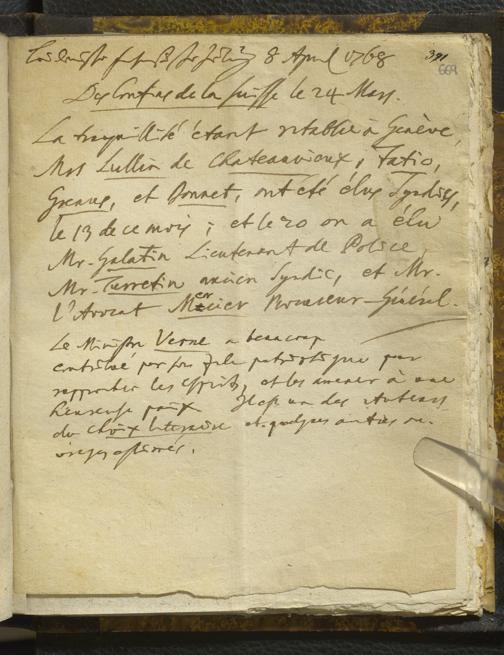 8 April 1768
391
669
Des Confins de la Suisse le 24 Mars.
La tranquillité étant retablie à Genève,
Mrs Lullin de Chateauvieux, Fatio,
Grenus, et Bonnet, ont été élus Syndics,
le 13 de ce mois; et le 20 on a élu
Mr. Galatin Lieutenant de Police,
Mr. Turretin ancien Syndic, et Mr.
l'Avocat Mercier Procureur-Général.
Le Ministre Verne a beaucoup
contribué par son zele patriotique pour
rapprocher les esprits, et les amener à une
heureuse paix Il est un des Auteurs
du Choix literaire et quelques autres ou-
vrages estimés.